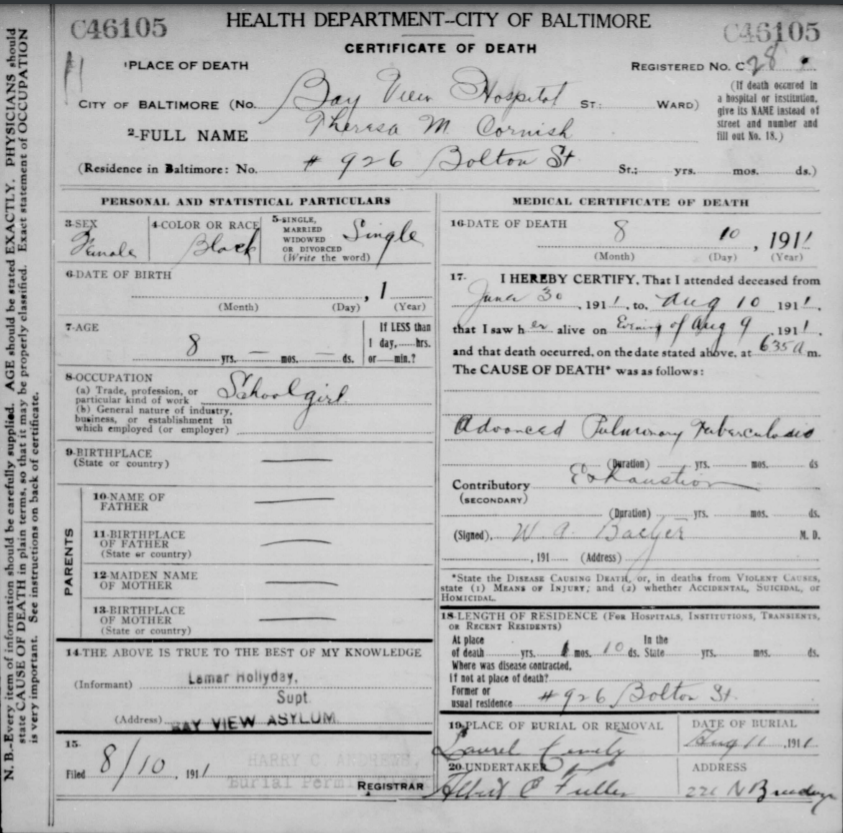 HEALTH DEPARTMENT--CITY OF BALTIMORE
C46105
C46105
CERTIFICATE OF DEATH
1-PLACE OF DEATH
REGISTERED No. C28
CITY OF BALTIMORE (No. Bay View Hospital ST: WARD)
(If death occured in
a hospital or institution,
give its NAME instead of
street and number and
fill out No. 18.)
2-FULL NAME Theresa M. Cornish
(Residence in Baltimore: No. # 926 Bolton St St.; yrs. mos. ds.)
PERSONAL AND STATISTICAL PARTICULARS
3-SEX
Female
4-COLOR OR RACE
Black
5-SINGLE,
MARRIED
WIDOWED
OR DIVORCED
(Write the word)
Single
6-DATE OF BIRTH
, 1
(Month) (Day) (Year)
7-AGE
8 yrs. — mos. — ds.
If LESS than
1 day, hrs.
or min.?
8-OCCUPATION
(a) Trade, profession, or
particular kind of work
School girl
(b) General nature of industry,
business, or establishment in
which employed (or employer)
9-BIRTHPLACE
(State or country)
PARENTS
10-NAME OF
FATHER
11-BIRTHPLACE
OF FATHER
(State or country)
12-MAIDEN NAME
OF MOTHER
13-BIRTHPLACE
OF MOTHER
(State or country)
14-THE ABOVE IS TRUE TO THE BEST OF MY KNOWLEDGE
(Informant) Lamar Hollyday,
Supt
(Address) BAY VIEW ASYLUM
15-
Filed 8/10, 1911
HARRY C. ANDREWS,
Burial Permit
REGISTRAR
MEDICAL CERTIFICATE OF DEATH
16-DATE OF DEATH
8 10, 1911
(Month) (Day) (Year)
17. I HEREBY CERTIFY, That I attended deceased from
June 30, 1911, to Aug 10 1911,
that I saw her alive on Evening of Aug 9, 1911.
and that death occurred, on the date stated above, at 635 A m.
The CAUSE OF DEATH* was as follows:
Advanced Pulmonary Tuberculosis
(Duration) yrs. mos. ds
Contributory Exhaustion
(SECONDARY)
(Duration) yrs. mos. ds.
(Signed), W. A. M. D.
, 191 (Address)
*State the DISEASE CAUSING DEATH, or, in deaths from VIOLENT CAUSES,
state (1) MEANS OF INJURY; and (2) whether ACCIDENTAL, SUICIDAL, or
HOMICIDAL.
18-LENGTH OF RESIDENCE (FOR HOSPITALS, INSTITUTIONS, TRANSIENTS,
OR RECENT RESIDENTS)
At place
of death yrs. 1 mos. 10 ds.
In the
State yrs. mos. ds.
Where was disease contracted,
If not at place of death?
Former or
usual residence # 926 Bolton St.
19-PLACE OF BURIAL OR REMOVAL
Laurel
DATE OF BURIAL
Aug 11, 1911
20-UNDERTAKER
Albert C Fuller
ADDRESS
N
N. B.-Every item of information should be carefully supplied. AGE should be stated EXACTLY. PHYSICIANS should
state CAUSE OF DEATH in plain terms, so that it may be properly classified. Exact statement of OCCUPATION
is very important. See instructions on back of certificate.